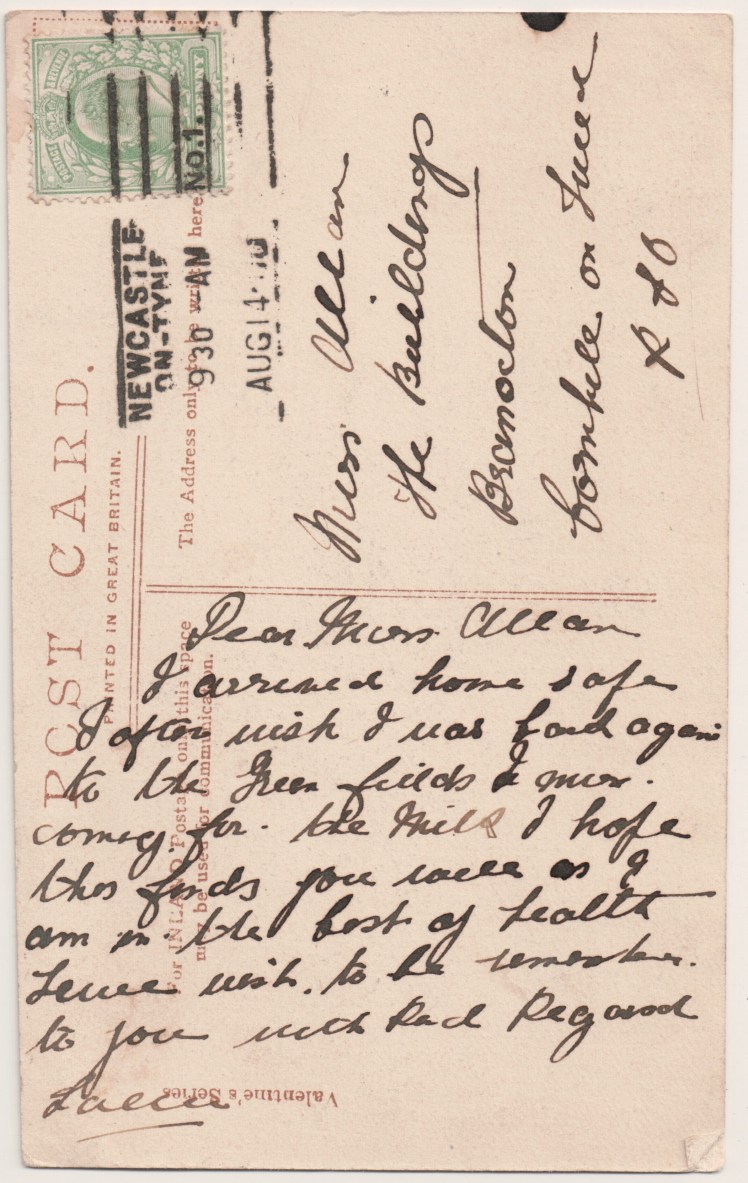 POST CARD.
PRINTED IN GREAT BRITAIN.
For INLAND Postage only this space
may be used for communication.
The Address only to be written here
NEWCASTLE
ON-TYNE
9 30 AM
AUG 14
No.1.
POSTAGE
Miss Allan
The Buildings
Branxton
Cornhill on Tweed
R S O
Dear Miss Allan
I arrived home safe
I often wish I was back again
to the Green fields I miss
coming for the Milk I hope
this finds you well as I
am in the best of health
wish to be
to you with Kind Regard
Valentine's Series